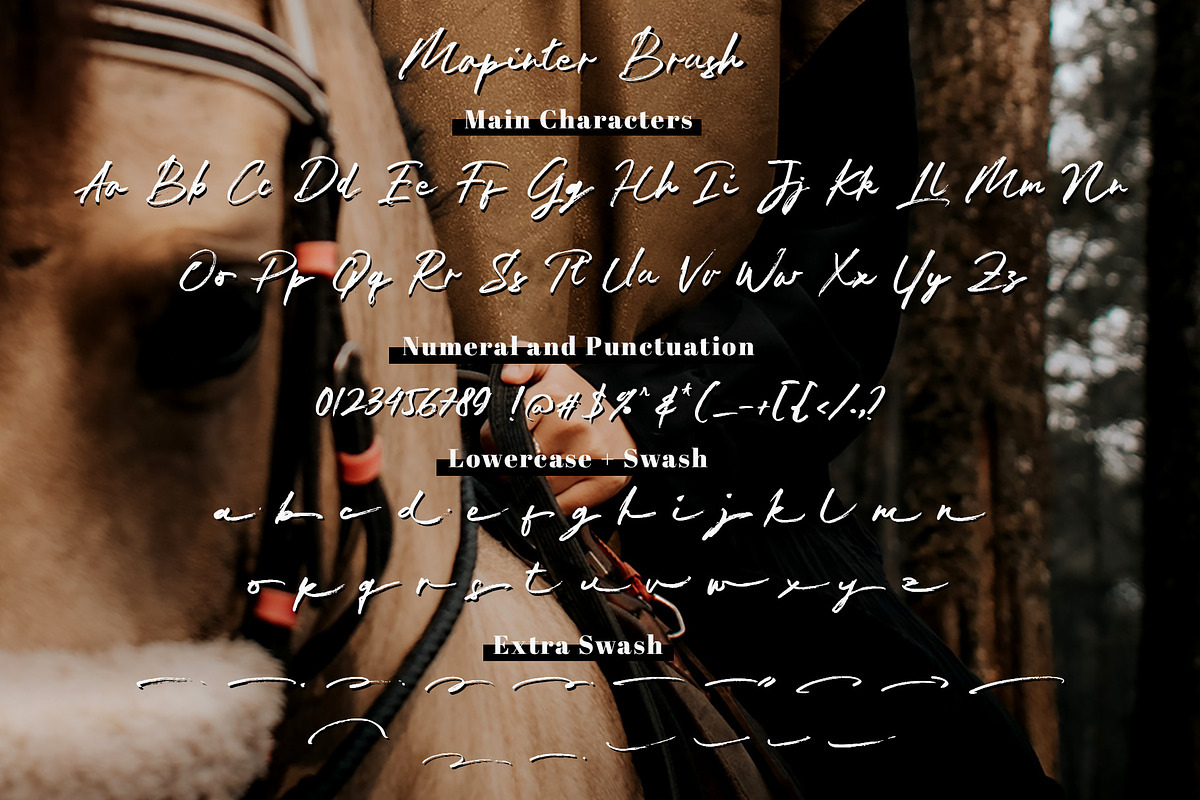 Mapinter Brush
Main Characters
Aa Bb Cc Dd Ee Ff Gg Hh Ii Jj Kk Ll Mm Nn
Oo Pp Qq Rr Ss Tt Uu Vv Ww Xx Yy Zz
Numeral and Punctuation
0123456789 !@#$%^&*(_-+[{</.,?
Lowercase + Swash
a b c d e f g h i j k l m n
o p q r s t u v w x y z
Extra Swash